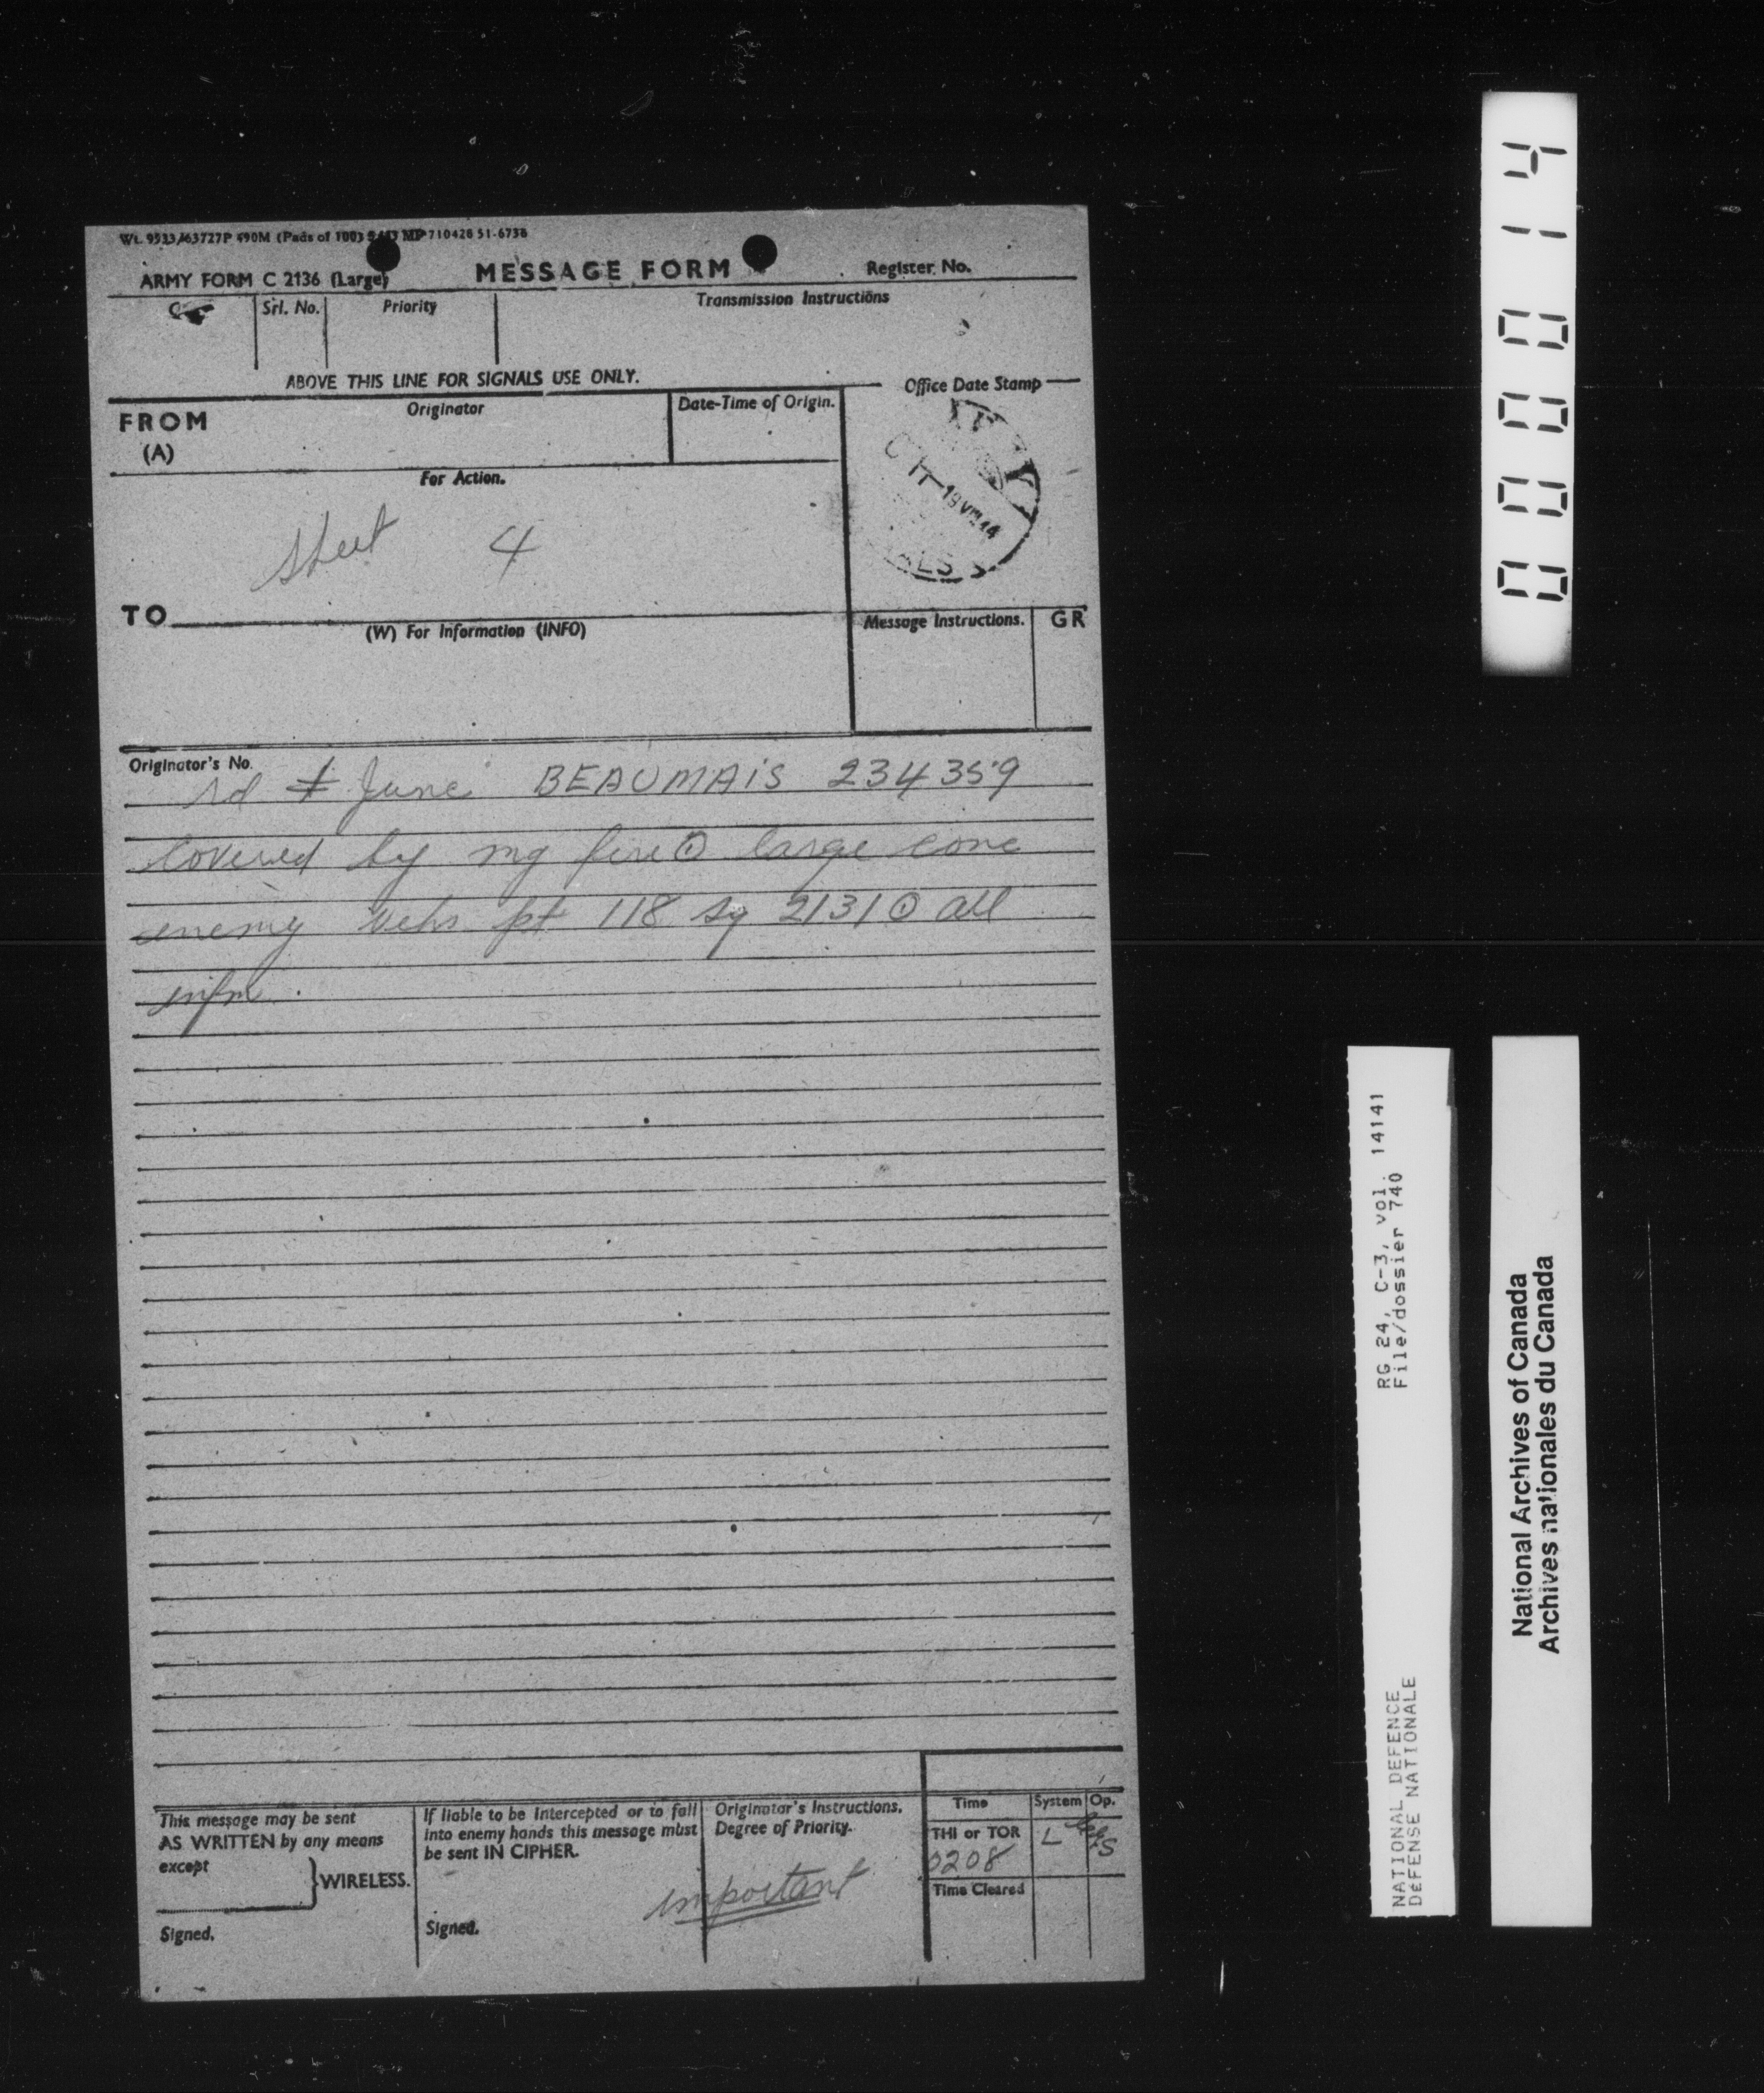 MESSAGE FORM
ARMY FORM C 2136 (Large)
Register No.
Srl. No.
Priority
Transmission Instructions
ABOVE THIS LINE FOR SIGNALS USE ONLY.
Office Date Stamp
FROM
(A)
Originator
Date-Time of Origin.
For Action.
Sheet 4
TO
(W) For Information (INFO)
Message Instructions.
GR
Originator's No.
rd June BEAUMAIS 234359
covered by mg fire ⊙ large conc
enemy vehs pt 118 sq 2131 ⊙ all
infm.
This message may be sent
AS WRITTEN by any means
except
WIRELESS.
Signed.
If liable to be intercepted or to fall
into enemy hands this message must
be sent IN CIPHER.
Signed.
Originator's Instructions.
Degree of Priority.
important
Time
System
Op.
THI or TOR
L
0208
Time Cleared
000014
RG 24, C-3, vol. 14141
File/dossier 740
NATIONAL DEFENCE
DéFENSE NATIONALE
National Archives of Canada
Archives nationales du Canada